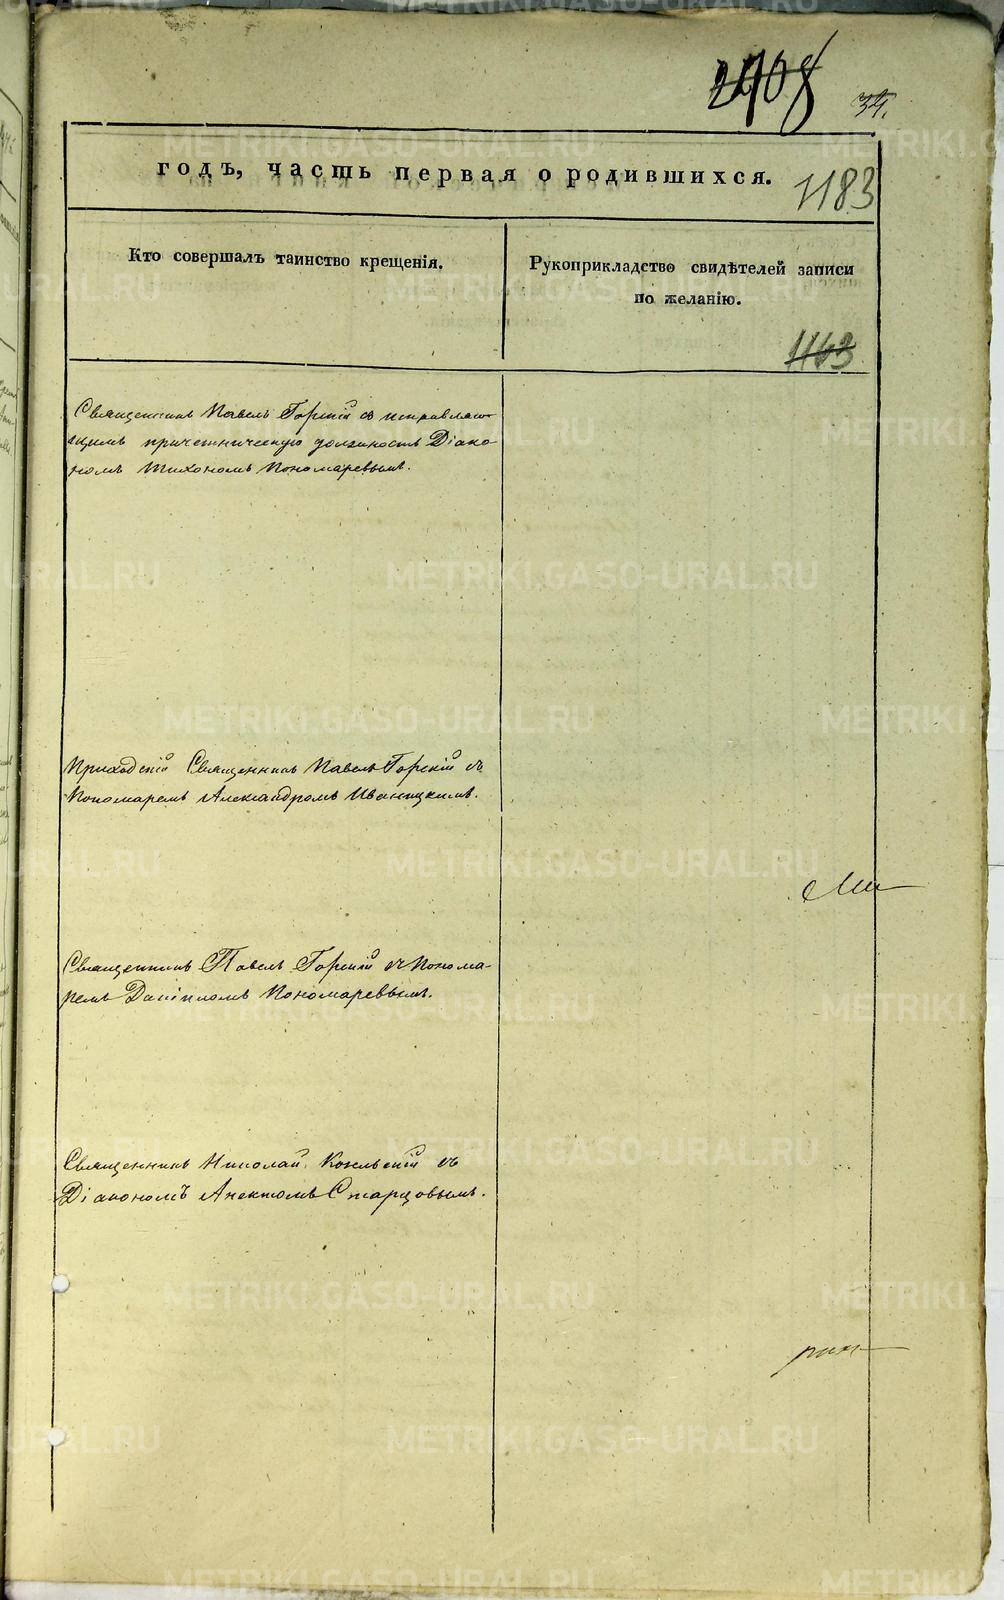 34.
годъ, часть первая о родившихся.
1183
Кто совершалъ таинство крещенія.
Рукоприкладство свидѣтелей записи
по желанію.
1163
Священникъ Павелъ Горскій съ исправляю-
щимъ причетническую должность Діако-
номъ Тихономъ Пономаревымъ.
Приходскій Священникъ Павелъ Горскій съ
Пономаремъ Александромъ Иваницкимъ.
Священникъ Павелъ Горскій съ Понома-
ремъ Даніиломъ Пономаревымъ.
Священникъ Николай съ
Діакономъ Старцовымъ.
METRIKI.GASO-URAL.RU